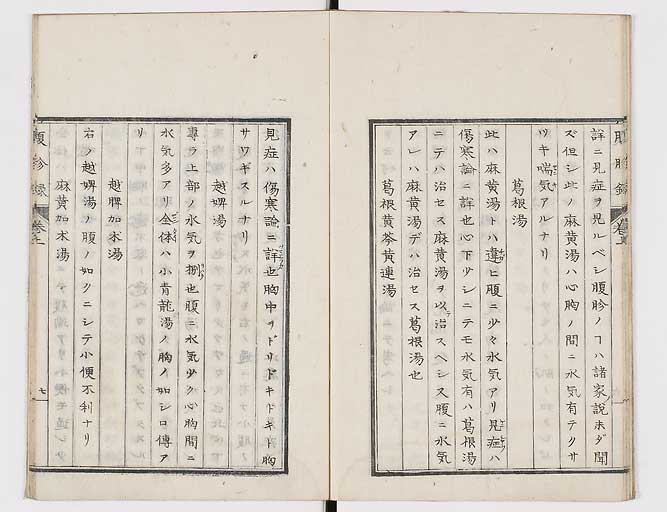 詳ニ見症ヲ見ルベシ腹胗ノヿハ諸家説未ダ聞
ズ但シ此ノ麻黄湯ハ心胸ノ間ニ水気有テクサ
ツキ喘気アルナリ
葛根湯
此ハ麻黄湯トハ違ヒ腹ニ少々水気アリ見症ハ
傷寒論ニ詳也心下少シニテモ水気有ハ葛根湯
ニテハ治セス麻黄湯ヲ以治スヘシス腹ニ水気
アレハ麻黄湯デハ治セス葛根湯也
葛根黄芩黄連湯
見症ハ傷寒論ニ詳也胸中ヲドリドキドキト胸
サワギスルナリ
越婢湯
専ラ上部ノ水気ヲ捌也腹ニ水気少ク心胸間ニ
水気多アリ全体ハ小青龍湯ノ胸ノ如シ口傳ア
リ
越脾加朮湯
右ノ越婢湯ノ腹ノ如クニシテ小便不利ナリ
麻黄加朮湯
腹胗録
巻之
七